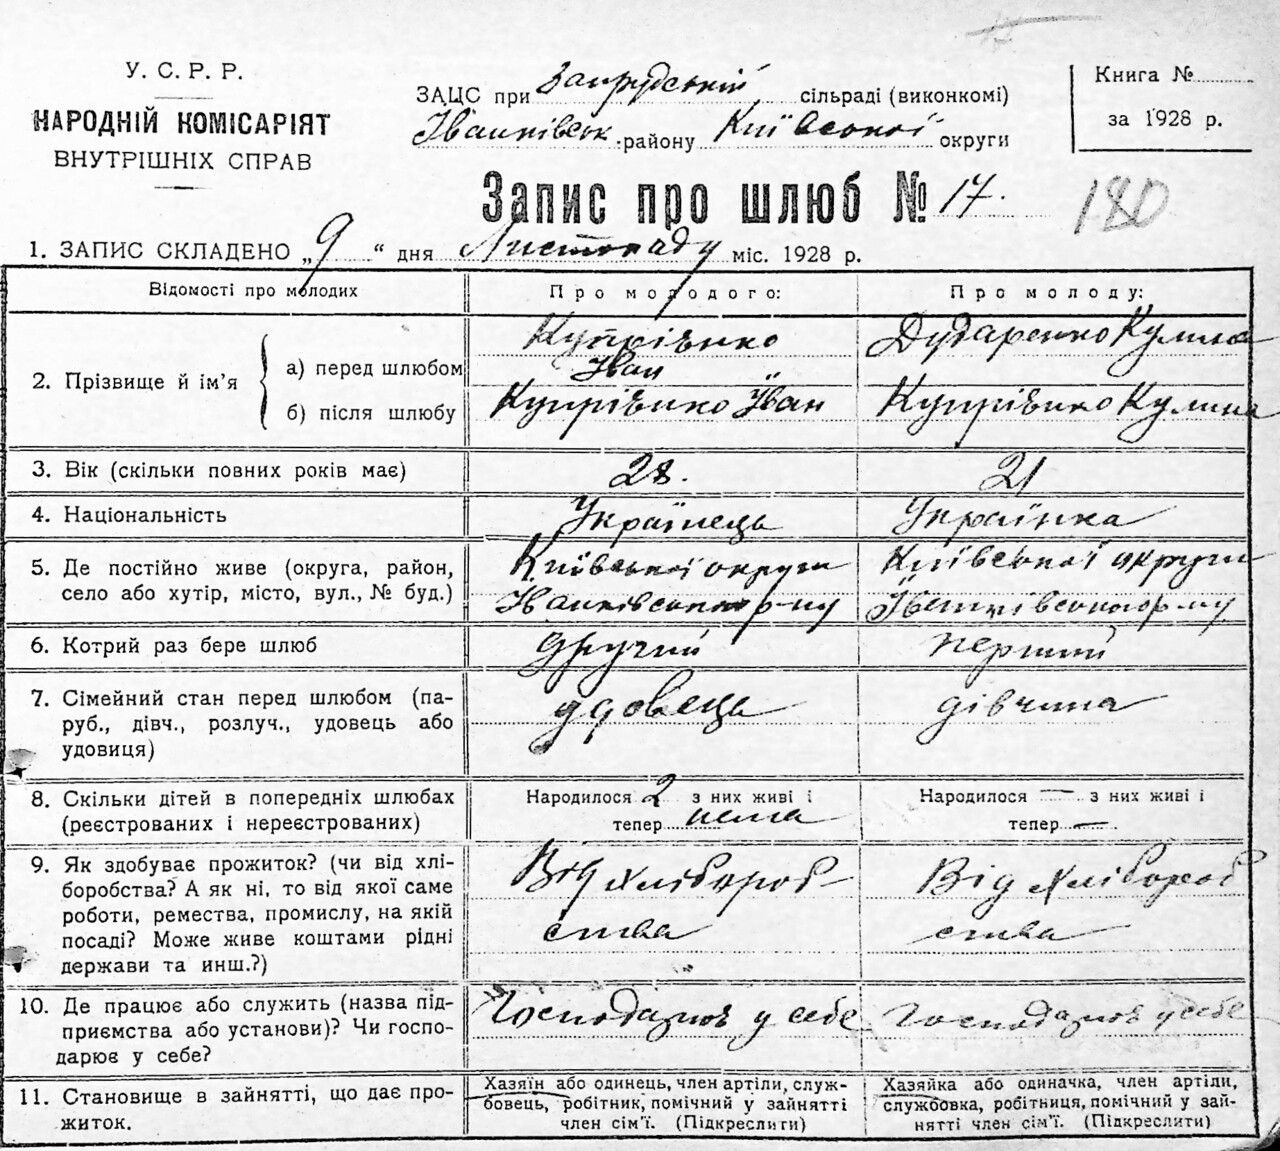 У. С. Р. Р.
НАРОДНІЙ КОМІСАРІЯТ
ВНУТРІШНІХ СПРАВ
ЗАЦС при Запрудській сільраді (виконкомі)
Іванківськ. району Київської округи
Книга №
за 1928 р.
Запис про шлюб № 17.
180
1. ЗАПИС СКЛАДЕНО „9“ дня Листопаду міс. 1928 р.
Відомості про молодих
Про молодого:
Про молоду:
2. Прізвище й ім’я
а) перед шлюбом
Купрієнко
Іван
Дударенко Кулина
б) після шлюбу
Купрієнко Іван
Купрієнко Кулина
3. Вік (скільки повних років має)
28.
21
4. Національність
Українець
Українка
5. Де постійно живе (округа, район,
село або хутір, місто, вул., № буд.)
Київської округи
Іванківського р-ну
Київської округи
Іванківського р-ну
6. Котрий раз бере шлюб
другий
перший
7. Сімейний стан перед шлюбом (па-
руб., дівч., розлуч., удовець або
удовиця)
удовець
дівчина
8. Скільки дітей в попередніх шлюбах
(реєстрованих і нереєстрованих)
Народилося 2 з них живі і
тепер нема
Народилося — з них живі і
тепер —.
9. Як здобуває прожиток? (чи від хлі-
боробства? А як ні, то від якої саме
роботи, ремества, промислу, на якій
посаді? Може живе коштами рідні
держави та инш.?)
Від хлібороб
ства
Від хлібороб
ства
10. Де працює або служить (назва під-
приємства або установи)? Чи госпо-
дарює у себе?
у себе
у себе
11. Становище в зайнятті, що дає про-
житок.
Хазяїн або одинець, член артіли, служ-
бовець, робітник, помічний у зайнятті
член сім’ї. (Підкреслити)
Хазяйка або одиначка, член артіли,
службовка, робітниця, помічний у зай-
нятті член сім’ї. (Підкреслити)